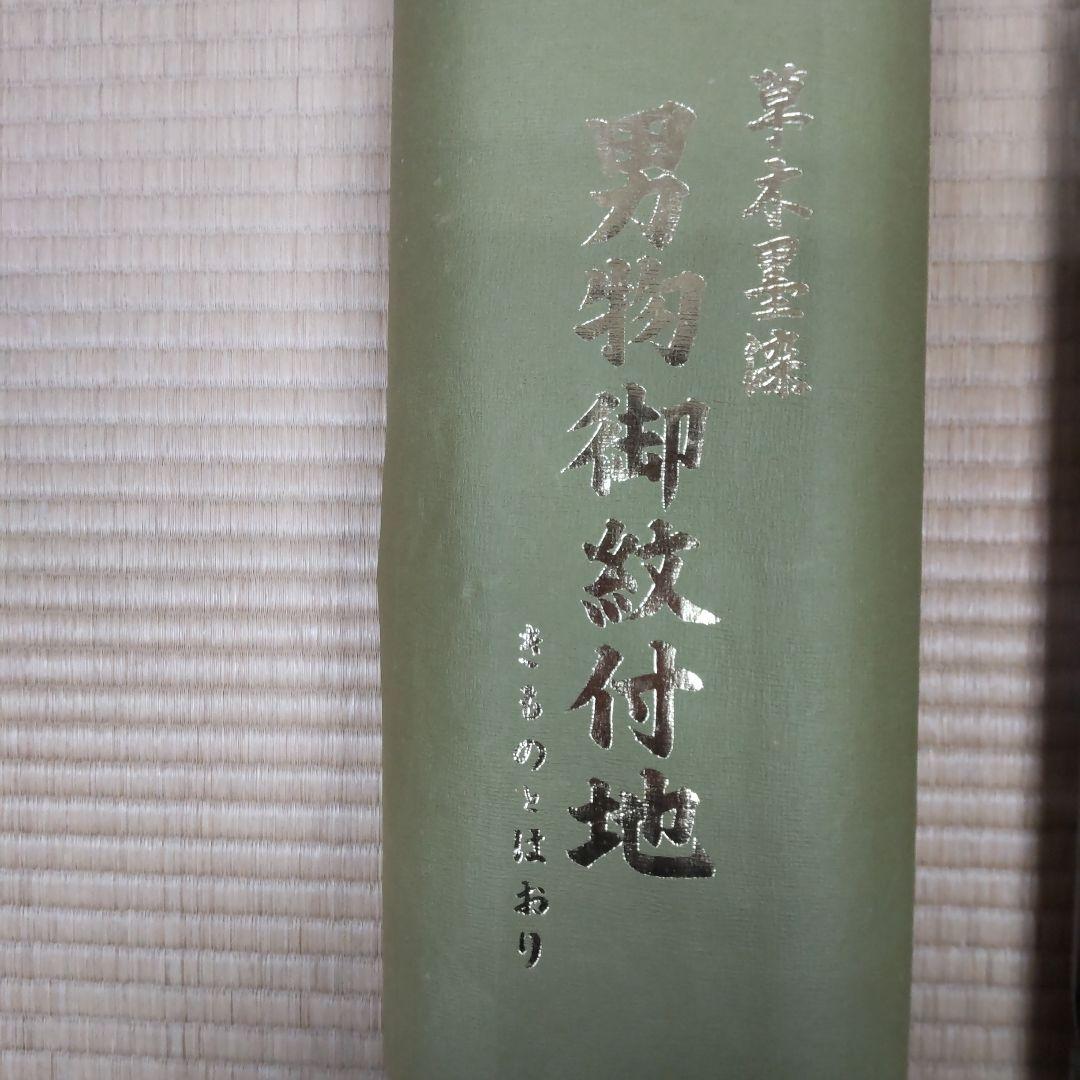 草木墨染
男物御紋付地
きものとはおり